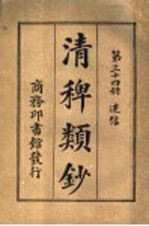 第三十四冊 迷信
清稗類鈔
商務印書館發行